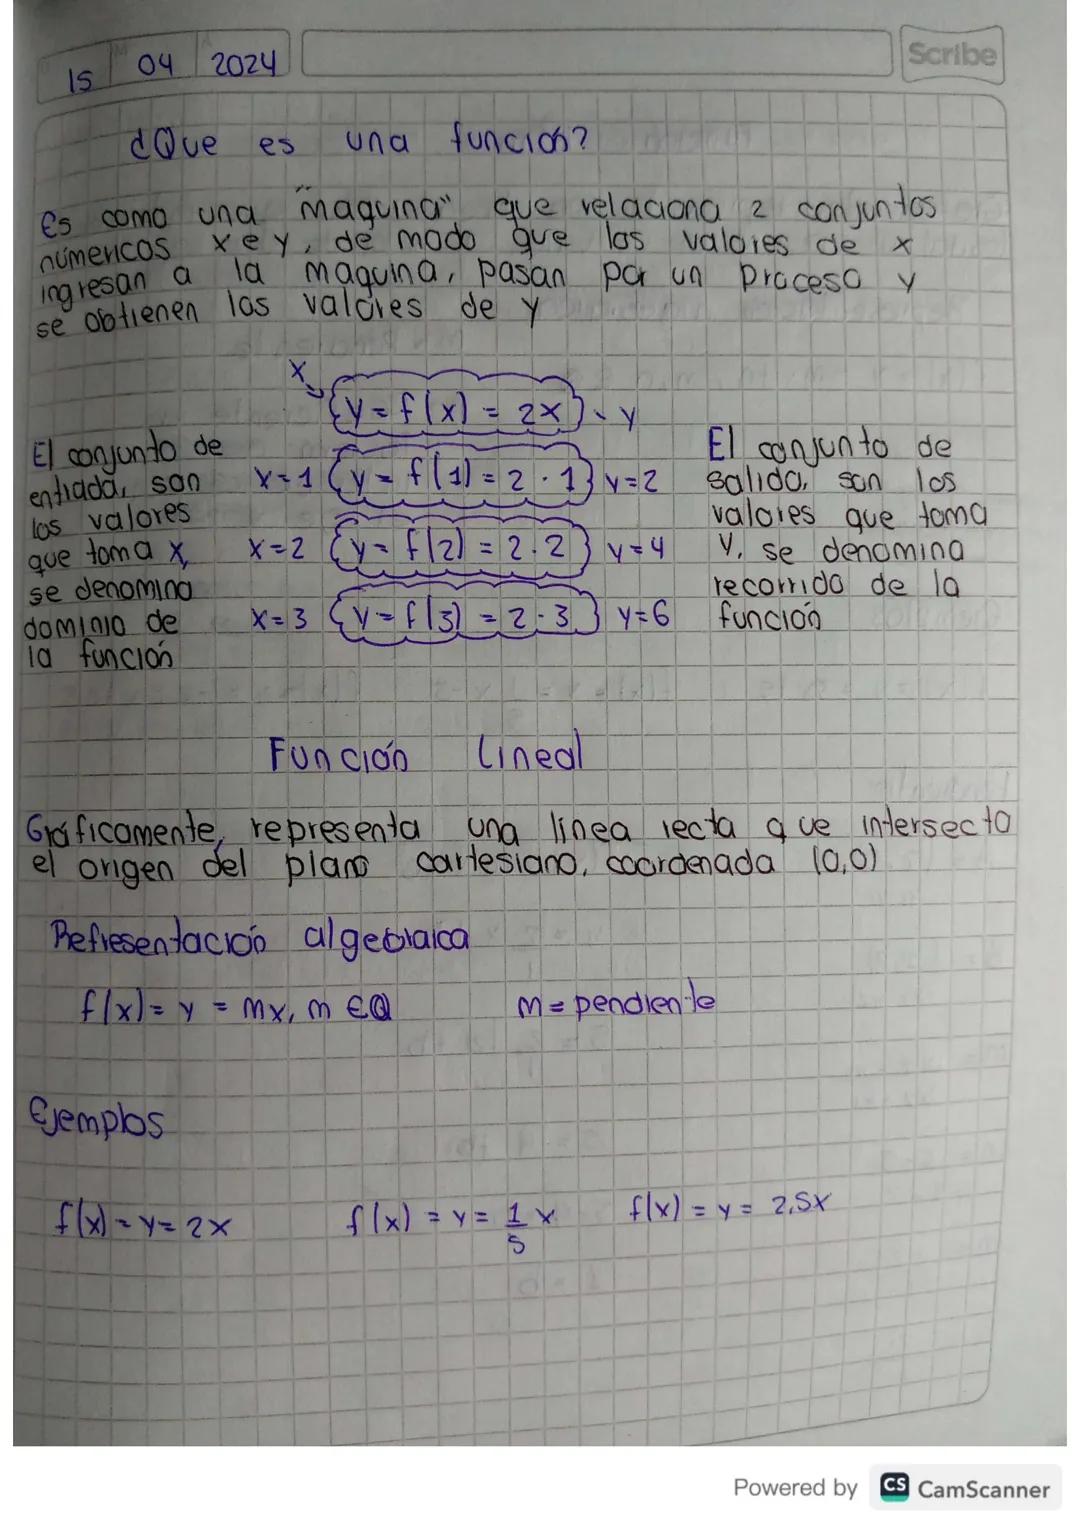 15 04 2024
Scribe
¿Que es una función?
Es como una "maquina" que relaciona 2 conjuntos
númericos x e y, de modo que los valores de x
ingresan a la maquina, pasan por un proceso y
se obtienen los valores de y
x
y = f(x) = 2x y
El conjunto de
entrada, son
los valores
que toma x,
se denomina
dominio de
la función
x=1 y = f(1) = 2 · 1 y=2
x=2 y = f(2) = 2·2 y=4
x=3 y = f(3) = 2·3 y=6
El conjunto de
salida, son los
valores que toma
y, se denomina
recorrido de la
función
Función Lineal
Gráficamente, representa una línea recta que intersecta
el origen del plano cartesiano, coordenada (0,0)
Representación algebraica
f(x)= y = mx, m ∈ Q m = pendiente
Ejemplos
f(x) = y = 2x f(x) = y = 1/5 x f(x) = y = 2,5x
Powered by CS CamScanner